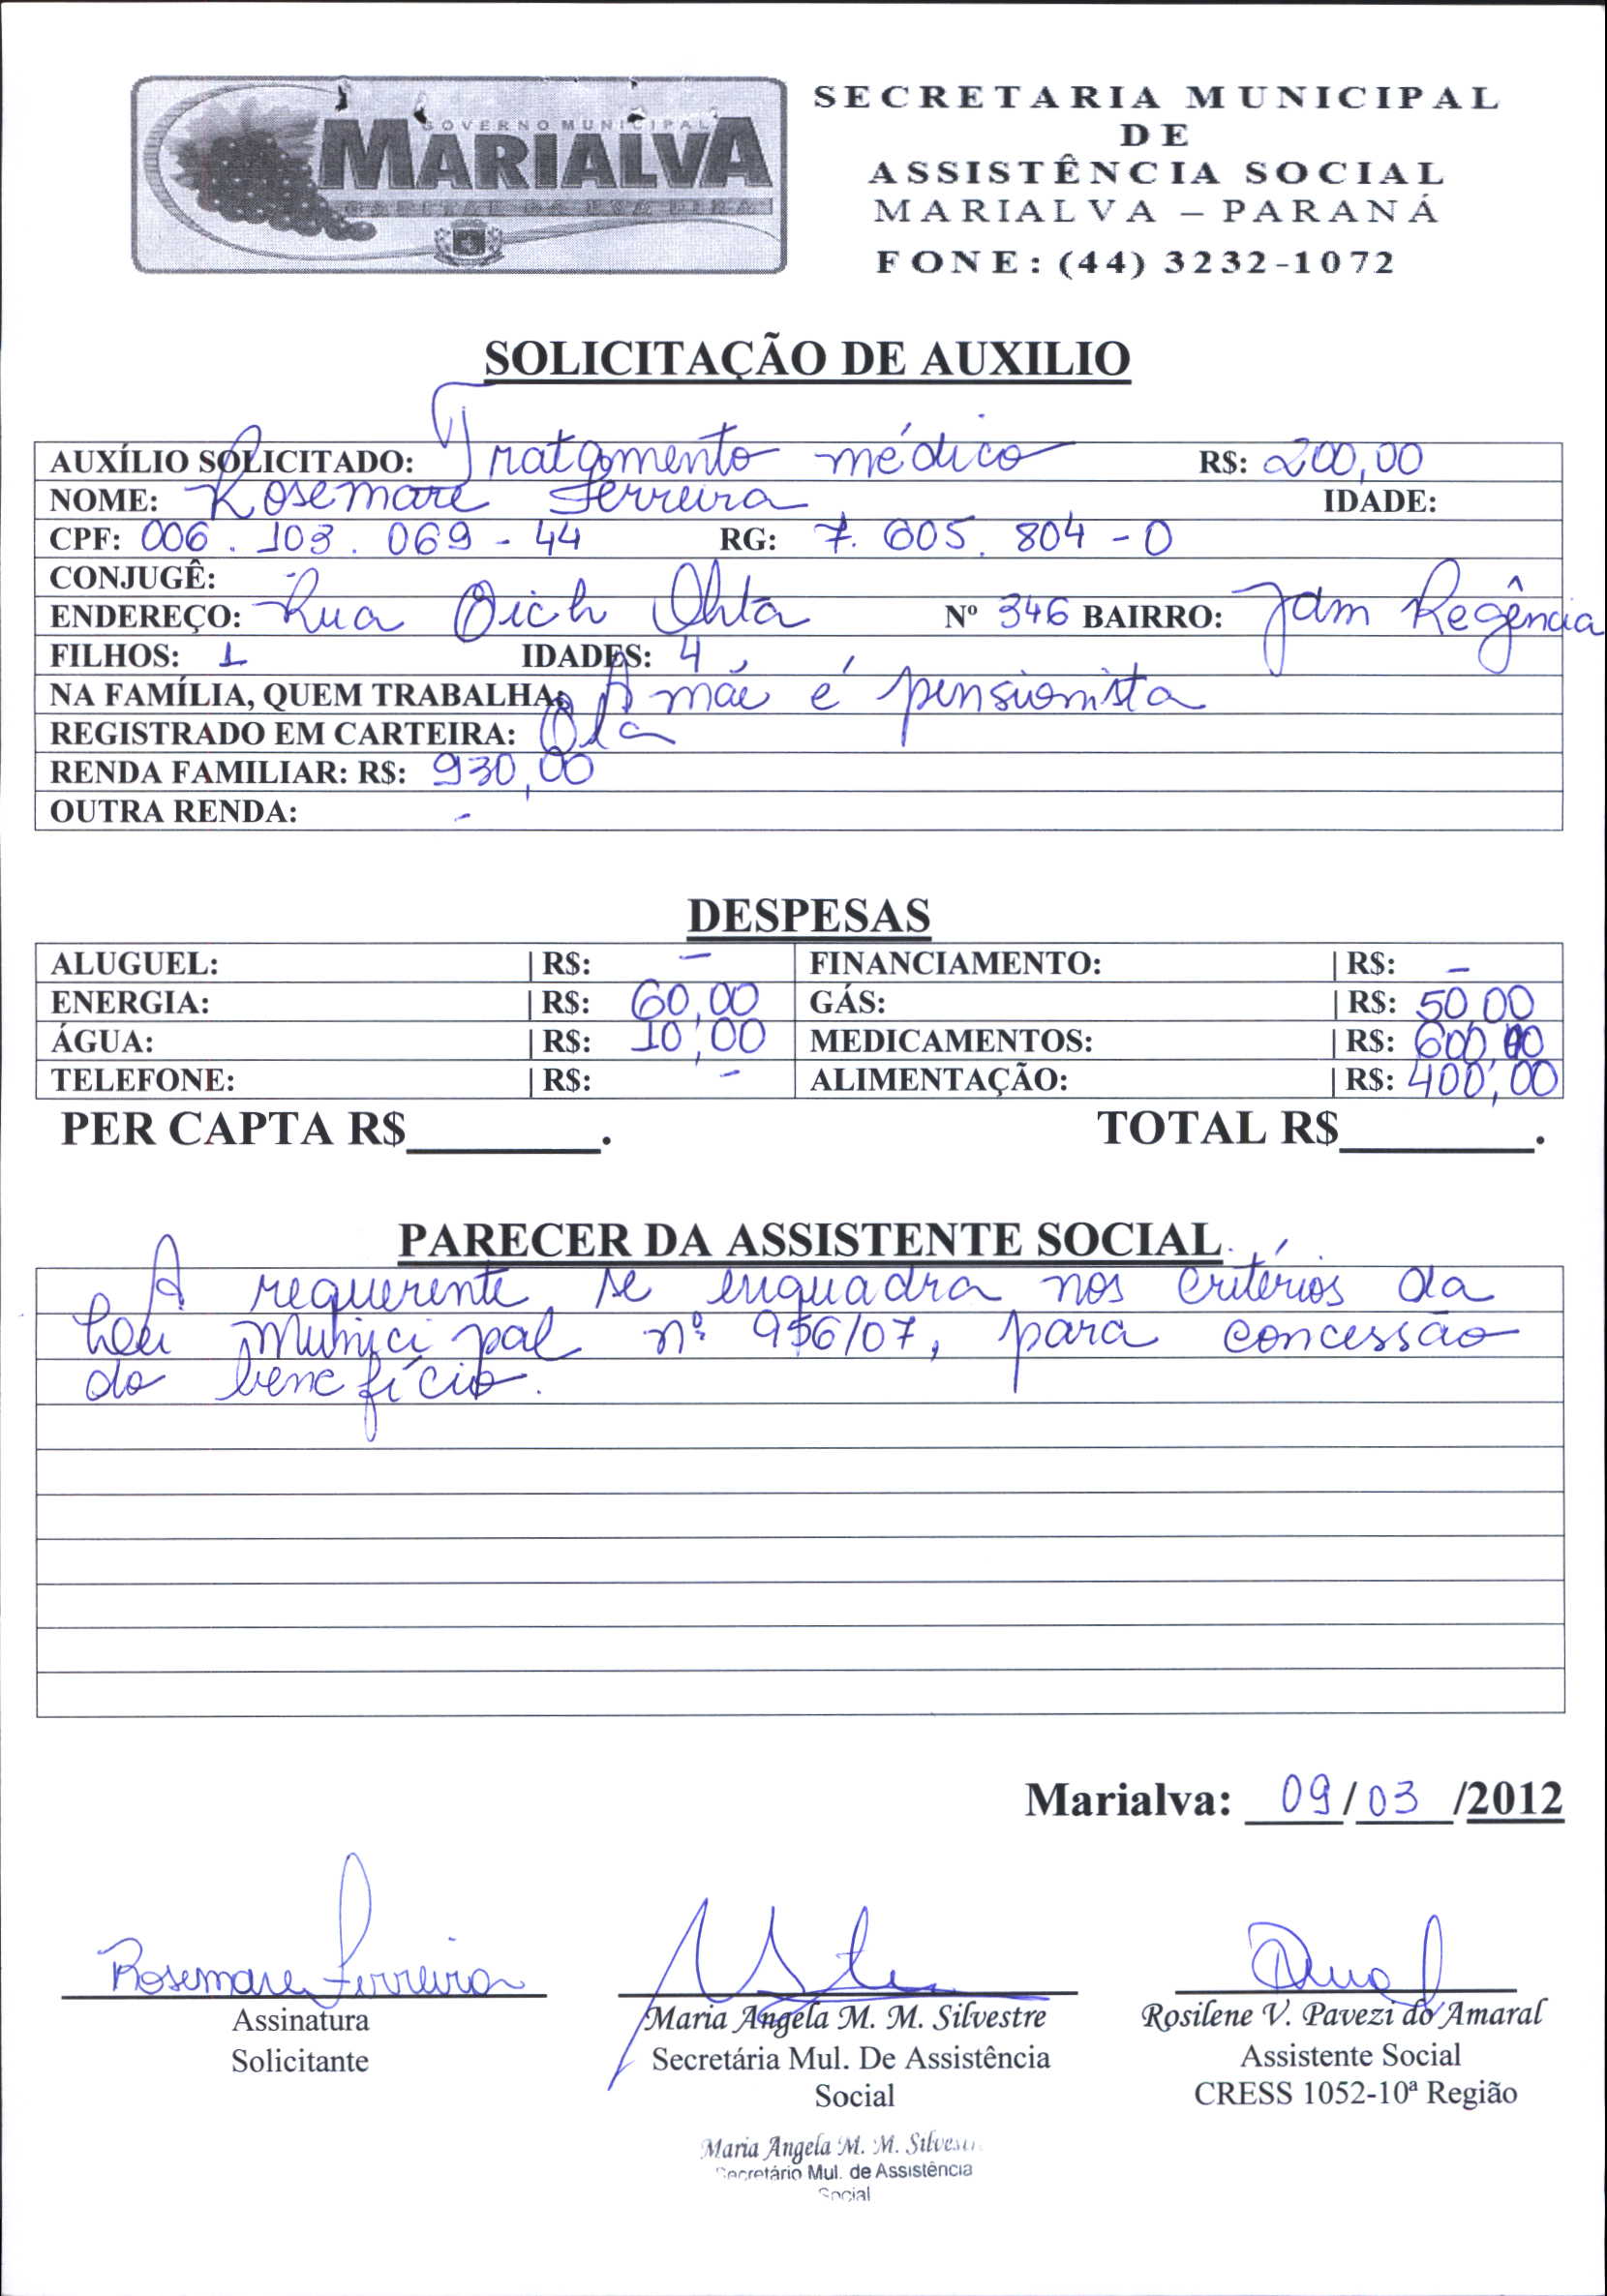 GOVERNO MUNICIPAL
MARIALVA
CAPITAL DA UVA FINA
SECRETARIA MUNICIPAL
DE
ASSISTÊNCIA SOCIAL
MARIALVA – PARANÁ
FONE: (44) 3232-1072
SOLICITAÇÃO DE AUXILIO
AUXÍLIO SOLICITADO: Tratamento médico R$: 200,00
NOME: Rosemare Ferreira IDADE:
CPF: 006.103.069-44 RG: 7.605.804-0
CONJUGÊ:
ENDEREÇO: Rua Oich Ohta Nº 346 BAIRRO: Jdm Regência
FILHOS: 1 IDADES: 4
NA FAMÍLIA, QUEM TRABALHA: A mãe é pensionista
REGISTRADO EM CARTEIRA:
RENDA FAMILIAR: R$: 930,00
OUTRA RENDA: -
DESPESAS
ALUGUEL: | R$: - FINANCIAMENTO: | R$: -
ENERGIA: | R$: 60,00 GÁS: | R$: 50,00
ÁGUA: | R$: 10,00 MEDICAMENTOS: | R$: 600,00
TELEFONE: | R$: - ALIMENTAÇÃO: | R$: 400,00
PER CAPTA R$________. TOTAL R$________.
PARECER DA ASSISTENTE SOCIAL
A requerente se enquadra nos critérios da
Lei Municipal nº 956/07, para concessão
do benefício.
Marialva: 09/03/2012
Rosemare Ferreira
Assinatura
Solicitante
Maria Angela M. M. Silvestre
Secretária Mul. De Assistência
Social
Rosilene V. Pavezi do Amaral
Assistente Social
CRESS 1052-10ª Região
Maria Angela M. M. Silvestre
Secretário Mul. de Assistência
Social